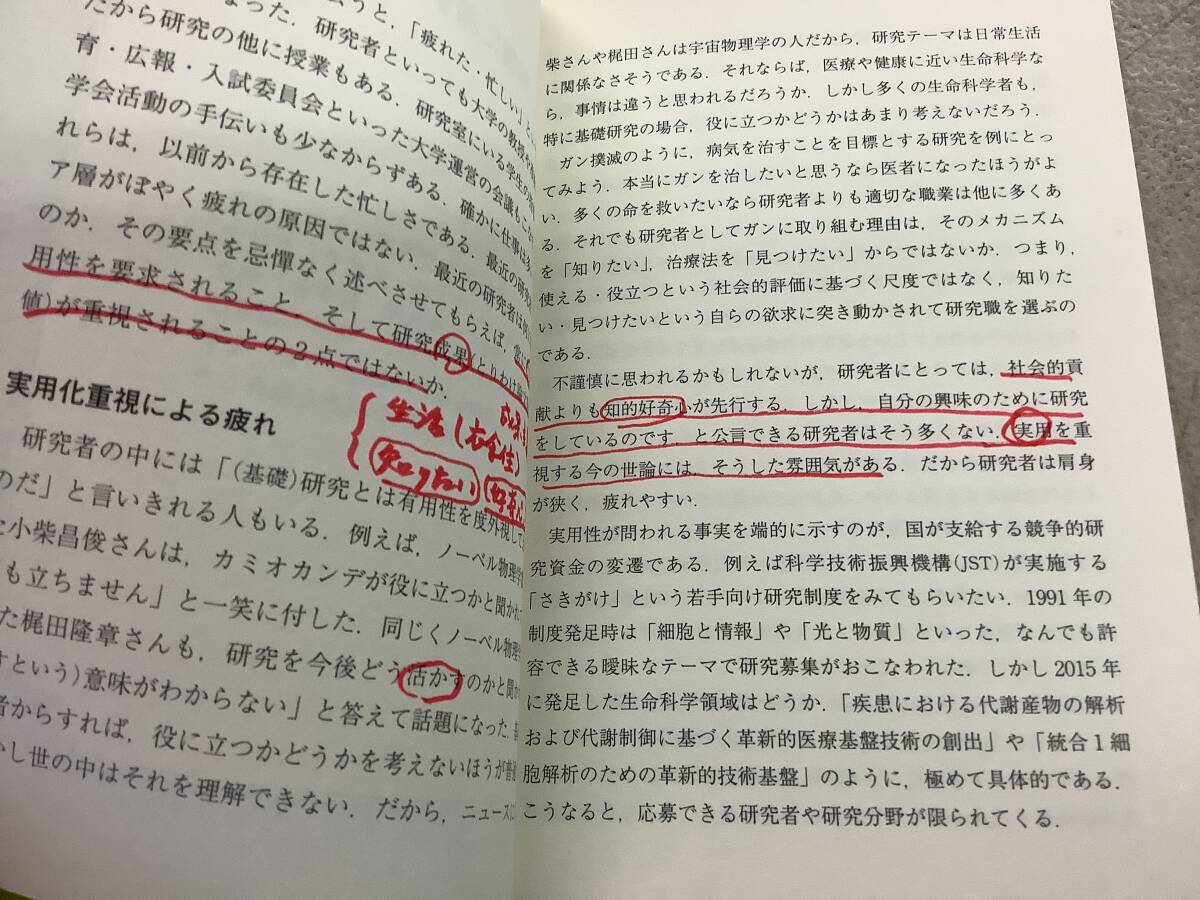 うと，「疲れた・忙しい」と
なった．研究者といっても大学の教授や
だから研究の他に授業もある．研究室にいる学生の
育・広報・入試委員会といった大学運営の会議も
学会活動の手伝いも少なからずある．確かに仕事は
れらは，以前から存在した忙しさである．最近の研究
ア層がぼやく疲れの原因ではない．最近の研究者は何
のか．その要点を忌憚なく述べさせてもらえば，常に
用性を要求されること，そして研究成果(とりわけ論文
値)が重視されることの２点ではないか．
生活し
知りたい
実用化重視による疲れ
研究者の中には「(基礎)研究とは有用性を度外視して
のだ」と言いきれる人もいる．例えば，ノーベル物理学
た小柴昌俊さんは，カミオカンデが役に立つかと聞かれ
も立ちません」と一笑に付した．同じくノーベル物理学
た梶田隆章さんも，研究を今後どう活かすのかと聞か
すという)意味がわからない」と答えて話題になった．
者からすれば，役に立つかどうかを考えないほうが普通
かし世の中はそれを理解できない．だから，ニュースに
柴さんや梶田さんは宇宙物理学の人だから，研究テーマは日常生活
に関係なさそうである．それならば，医療や健康に近い生命科学な
ら，事情は違うと思われるだろうか．しかし多くの生命科学者も，
特に基礎研究の場合，役に立つかどうかはあまり考えないだろう．
ガン撲滅のように，病気を治すことを目標とする研究を例にとっ
てみよう．本当にガンを治したいと思うなら医者になったほうがよ
い．多くの命を救いたいなら研究者よりも適切な職業は他に多くあ
る．それでも研究者としてガンに取り組む理由は，そのメカニズム
を「知りたい」，治療法を「見つけたい」からではないか．つまり，
使える・役立つという社会的評価に基づく尺度ではなく，知りた
い・見つけたいという自らの欲求に突き動かされて研究職を選ぶの
である．
不謹慎に思われるかもしれないが，研究者にとっては，社会的貢
献よりも知的好奇心が先行する．しかし，自分の興味のために研究
をしているのです，と公言できる研究者はそう多くない．実用を重
視する今の世論には，そうした雰囲気がある．だから研究者は肩身
が狭く，疲れやすい．
実用性が問われる事実を端的に示すのが，国が支給する競争的研
究資金の変遷である．例えば科学技術振興機構(JST)が実施する
「さきがけ」という若手向け研究制度をみてもらいたい．1991年の
制度発足時は「細胞と情報」や「光と物質」といった，なんでも許
容できる曖昧なテーマで研究募集がおこなわれた．しかし2015年
に発足した生命科学領域はどうか．「疾患における代謝産物の解析
および代謝制御に基づく革新的医療基盤技術の創出」や「統合１細
胞解析のための革新的技術基盤」のように，極めて具体的である．
こうなると，応募できる研究者や研究分野が限られてくる．